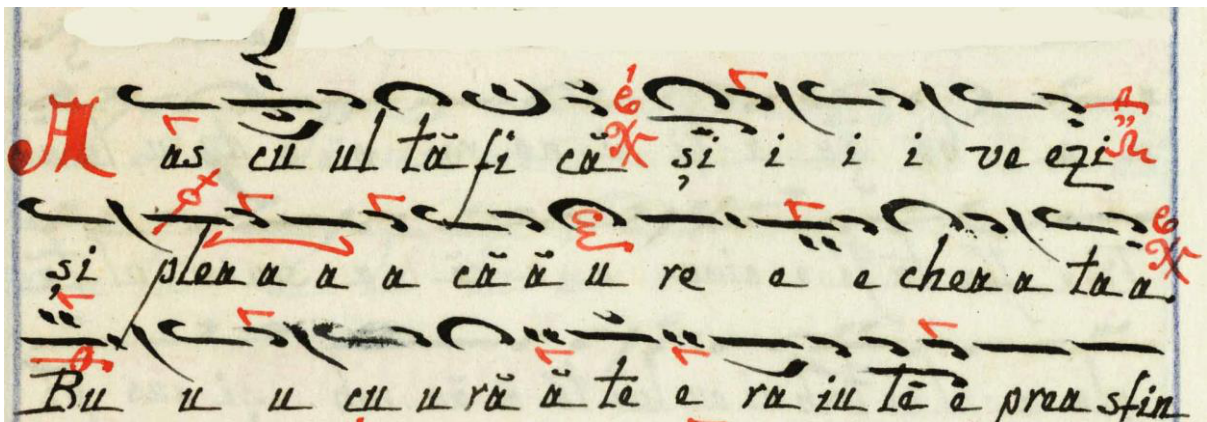 A as cu ul tă fi că și i i i ve ezi
și plea a a a că ă u re e e chea a ta a.
Bu u u cu u ră ă te e ra iu le e prea sfin